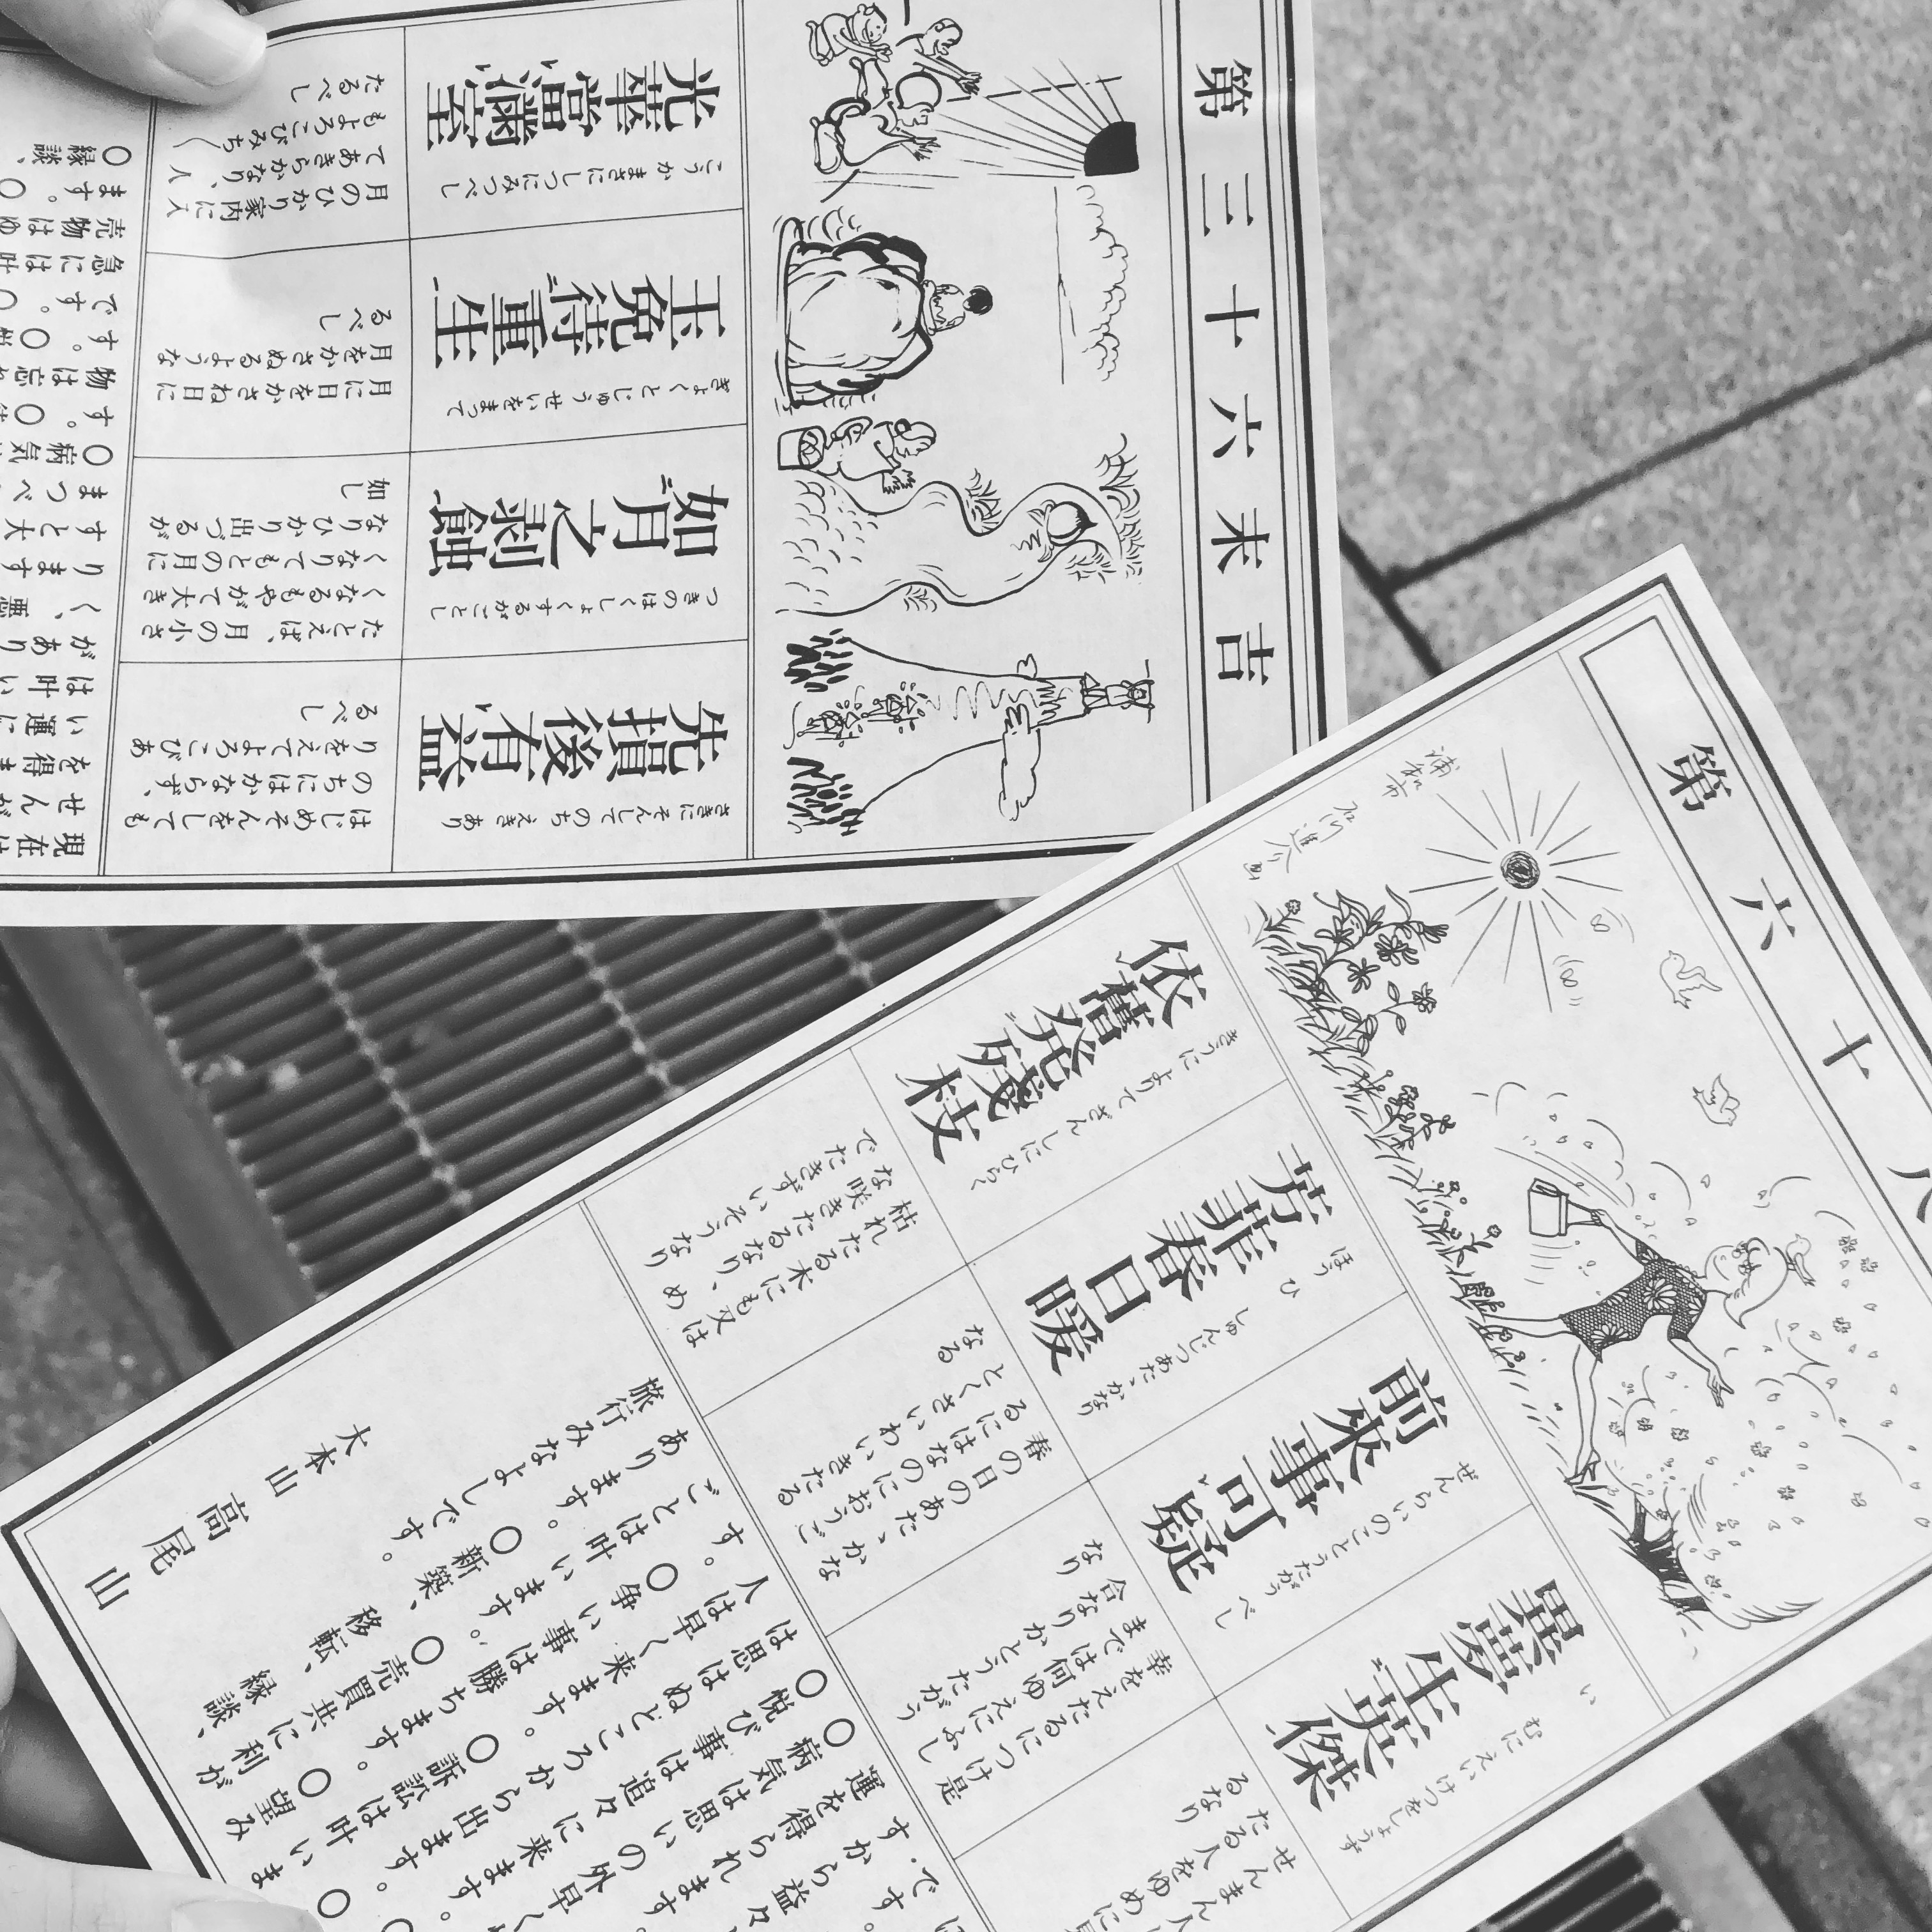 第三十六末吉
先損後有益
さきにそんしてのち えきあり
如月之剥蝕
つきのはくしょくするがことし
玉兔待重生
ぎょくと じゅうせいをまって
光華當満室
こうか まさにしつにみつべし
はじめそんをしても
のちにはかならず、
りをえてよろこびあ
るべし
たとえば、月の小さ
くなるもやがて大き
くなりてもとの月に
なりひかり出づるが
如し
月に日をかさね日に
月をかさぬるような
るべし
月のひかり家内に入
てあきらかなり、人
もよろこびみち〱
たるべし
現在は
せんが
を得ま
い運に
は叶い
があり
く、悪
ります
すと大
まつべ
○病気
す。○
物は忘
す。○
です。○
急には叶
売物はゆ
ます。○
○縁談、
第六十八
異夢生英傑
いむにえいけつをしょうず
前來事可疑
ぜんらいのことうたがうべし
芳菲春日暖
ほうひ しゅんじつあたゝかなり
依舊發殘枝
きうによりてざんしにひらく
せんまん人
たる人をゆめに
るなり
幸をえたるにつけ是
までは何ゆえにふし
合なりかとうたがう
なり
春の日のあたゝかな
るにはなのにおうご
とくさいわいきたる
なる
枯れたる木にも又は
な咲きたるなり、め
でたきずいそうなり
です。
すから益々
運を得られます。
○病気は思いの外早く
○悦び事は追々に来ます。
は思はぬところから出ます。○
人は早く来ます。○訴訟は叶いま
す。○争い事は勝ちます。○望み
ごとは叶います。○売買共に利が
あります。○新築、移転、縁談、
旅行みなよしです。
大本山高尾山